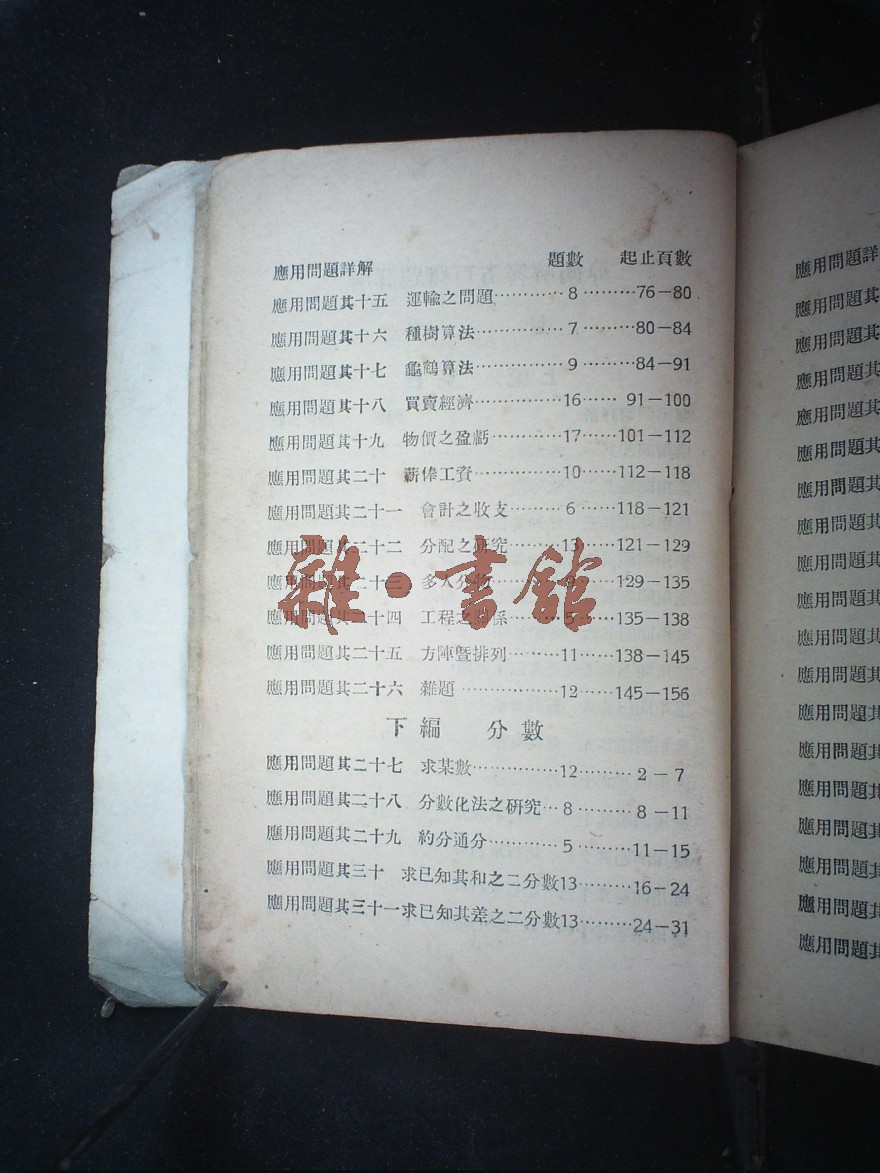 應用問題詳解 題數 起止頁數
應用問題其十五 運輸之問題…………8………76－80
應用問題其十六 種樹算法……………7………80－84
應用問題其十七 龜鶴算法……………9………84－91
應用問題其十八 買賣經濟……………16……91－100
應用問題其十九 物價之盈虧…………17……101－112
應用問題其二十 薪俸工資……………10……112－118
應用問題其二十一 會計之收支………6……118－121
應用問題其二十二 分配之研究………13……121－129
應用問題其二十三 多人分物………9……129－135
應用問題其二十四 工程之關係………5……135－138
應用問題其二十五 方陣暨排列………11……138－145
應用問題其二十六 雜題………………12……145－156
下編 分數
應用問題其二十七 求某數……………12………2－7
應用問題其二十八 分數化法之研究…8………8－11
應用問題其二十九 約分通分…………5………11－15
應用問題其三十 求已知其和之二分數13………16－24
應用問題其三十一求已知其差之二分數13………24－31
雜·書館
應用問題詳
應用問題其
應用問題其
應用問題其
應用問題其
應用問題其
應用問題其
應用問題其
應用問題其
應用問題其
應用問題其
應用問題其
應用問題其
應用問題其
應用問題其
應用問題其
應用問題其
應用問題其
應用問題其